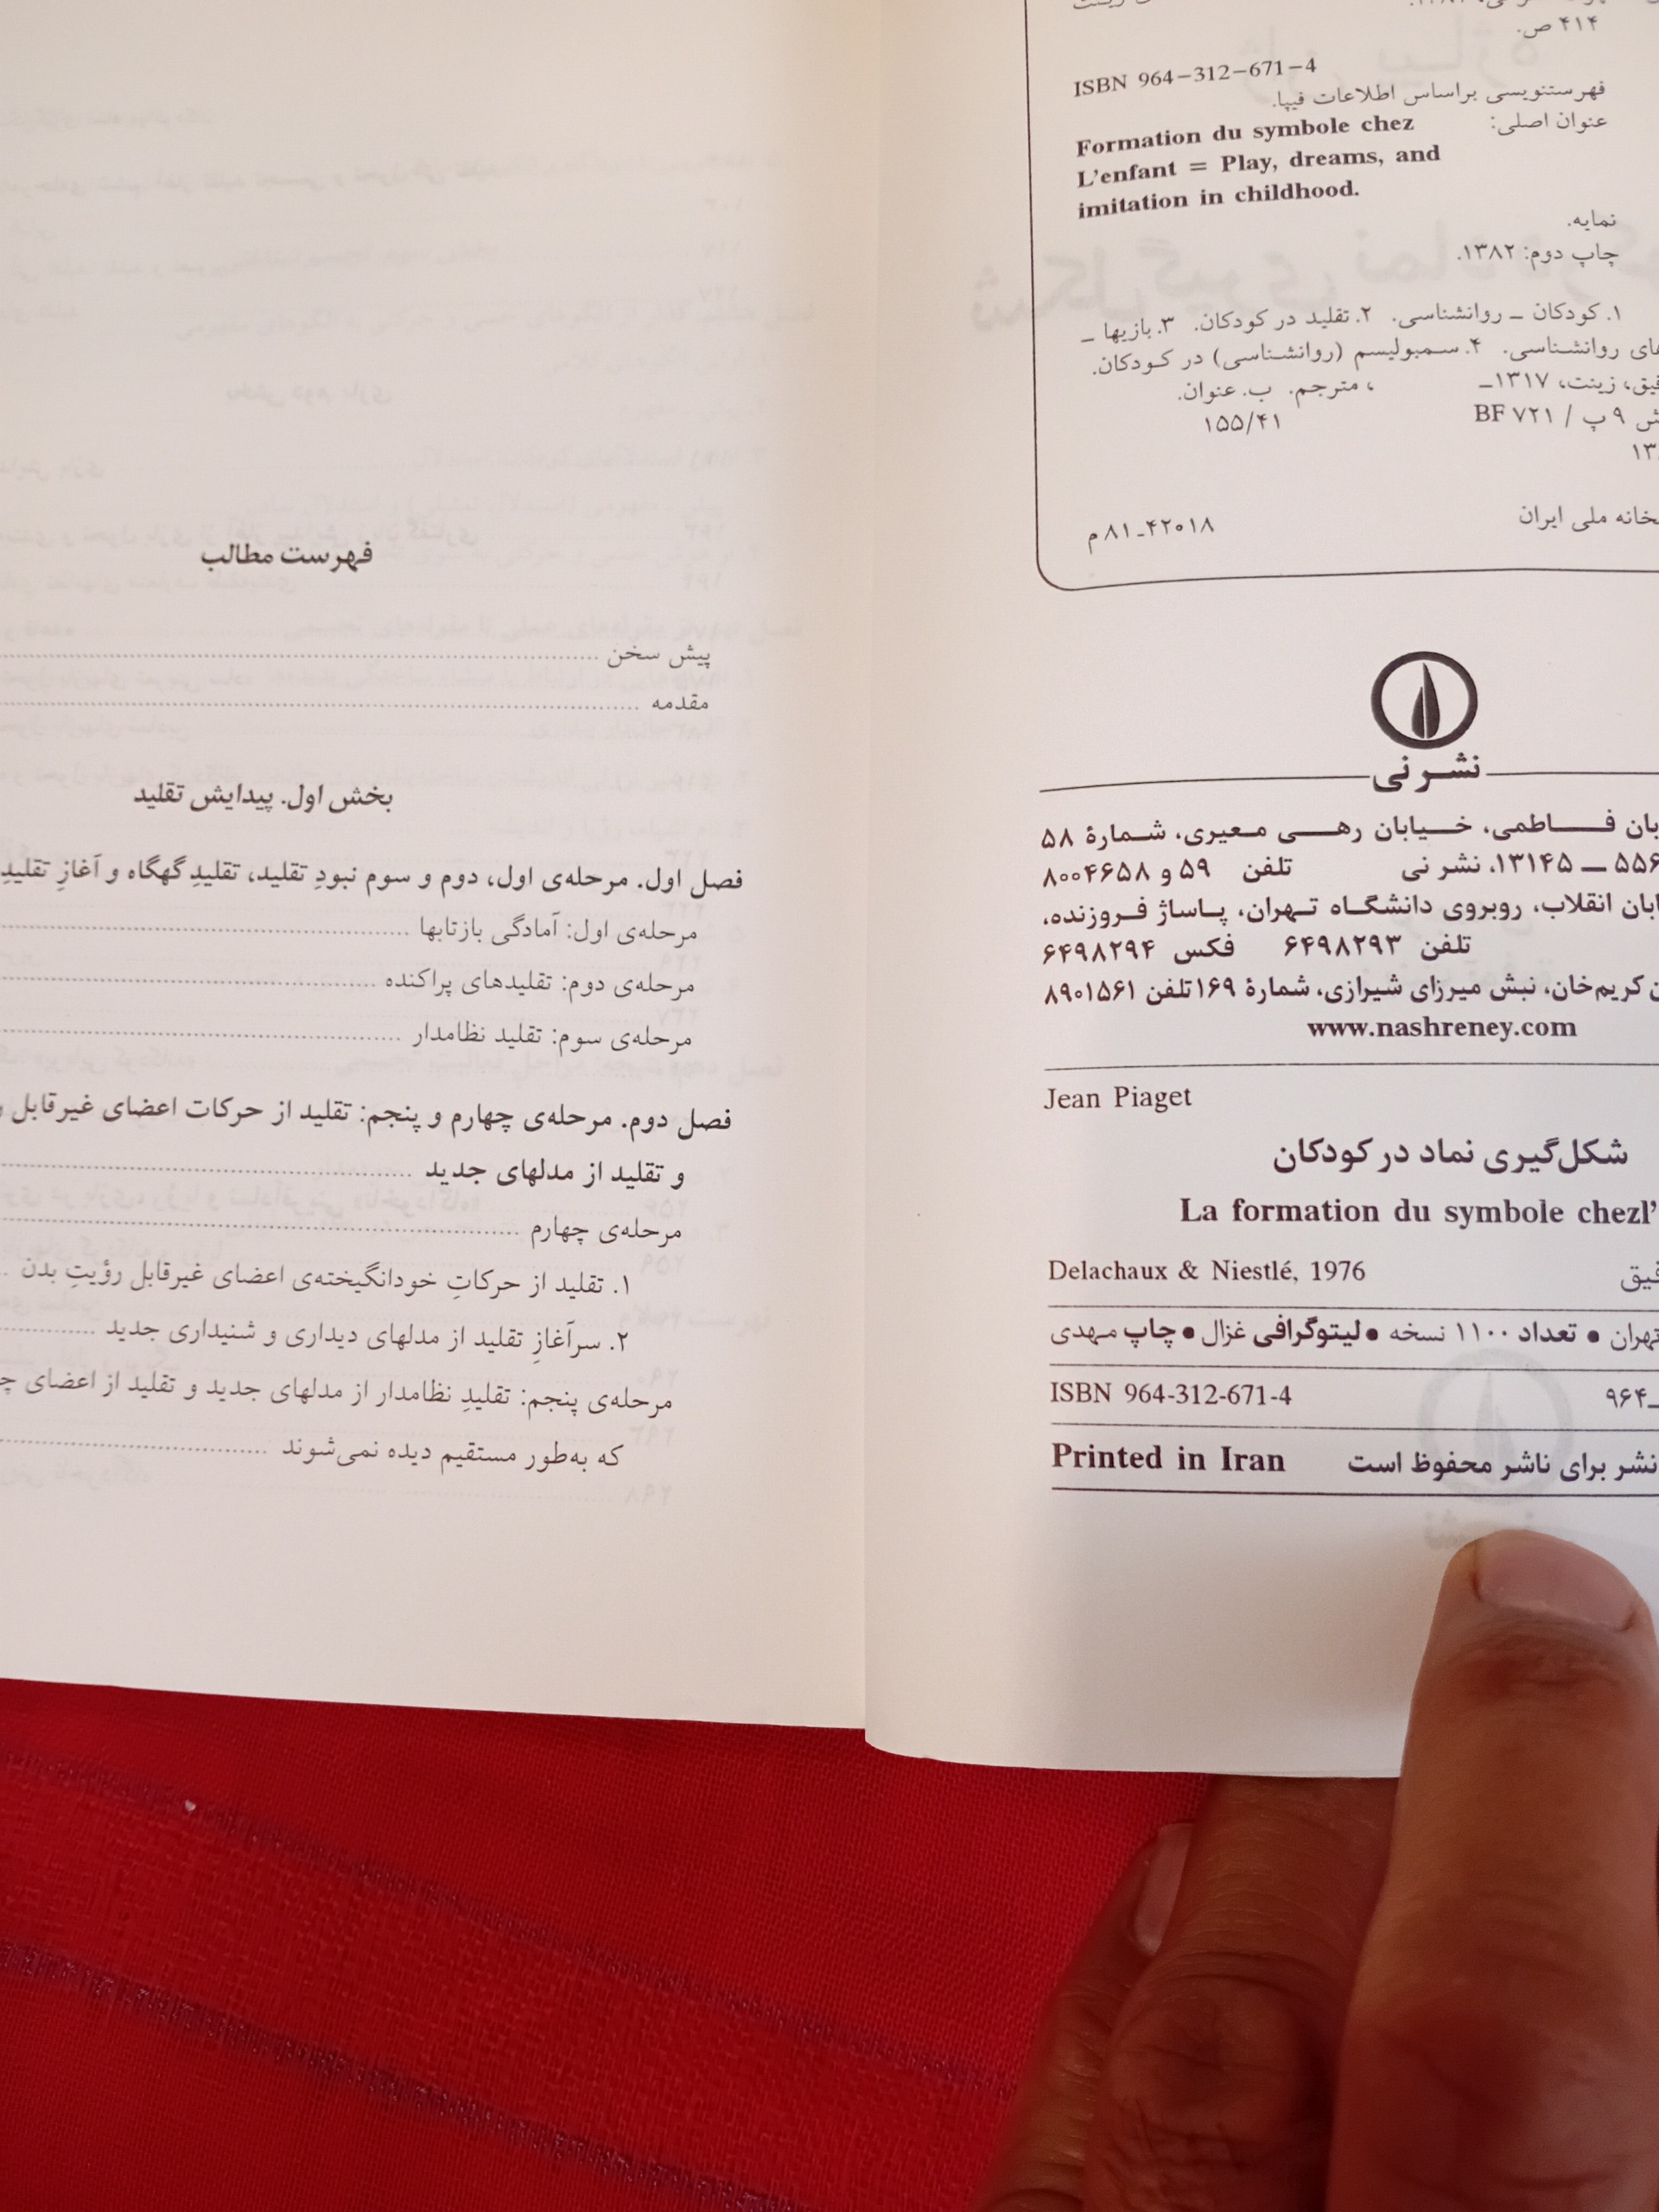 ۴۱۴ ص.
ISBN 964–312–671–4
فهرستنویسی براساس اطلاعات فیپا.
عنوان اصلی:
Formation du symbole chez
L'enfant = Play, dreams, and
imitation in childhood.
نمایه.
چاپ دوم: ۱۳۸۲.
۱. کودکان ــ روانشناسی. ۲. تقلید در کودکان. ۳. بازیها ــ
روانشناسی. ۴. سمبولیسم (روانشناسی) در کودکان.
زینت، ۱۳۱۷ــ ، مترجم. ب. عنوان.
۹ پ / BF ۷۲۱ ۱۵۵/۴۱
ملی ایران ۴۲۰۱۸ــ۸۱ م
نشر نی
فــاطمی، خــیابان رهــی مـعیری، شـمارهٔ ۵۸
۵۵۶ ــ ۱۳۱۴۵، نشر نی تلفن ۵۹ و ۸۰۰۴۶۵۸
انقلاب، روبروی دانشگـاه تـهران، پـاساژ فـروزنده،
تلفن ۶۴۹۸۲۹۳ فکس ۶۴۹۸۲۹۴
کریم‌خان، نبش میرزای شیرازی، شمارهٔ ۱۶۹ تلفن ۸۹۰۱۵۶۱
www.nashreney.com
Jean Piaget
شکل‌گیری نماد در کودکان
La formation du symbole chezl'
Delachaux & Niestlé, 1976
تهران • تعداد ۱۱۰۰ نسخه • لیتوگرافی غزال • چاپ مهدی
ISBN 964-312-671-4
۹۶۴ــ
Printed in Iran
نشر برای ناشر محفوظ است
فهرست مطالب
پیش سخن
مقدمه
بخش اول. پیدایش تقلید
فصل اول. مرحله‌ی اول، دوم و سوم نبودِ تقلید، تقلیدِ گهگاه و آغازِ تقلیدِ
مرحله‌ی اول: آمادگی بازتابها
مرحله‌ی دوم: تقلیدهای پراکنده
مرحله‌ی سوم: تقلید نظامدار
فصل دوم. مرحله‌ی چهارم و پنجم: تقلید از حرکات اعضای غیرقابل
و تقلید از مدلهای جدید
مرحله‌ی چهارم
۱. تقلید از حرکاتِ خودانگیخته‌ی اعضای غیرقابل رؤیتِ بدن
۲. سرآغازِ تقلید از مدلهای دیداری و شنیداری جدید
مرحله‌ی پنجم: تقلیدِ نظامدار از مدلهای جدید و تقلید از اعضای
که به‌طور مستقیم دیده نمی‌شوند